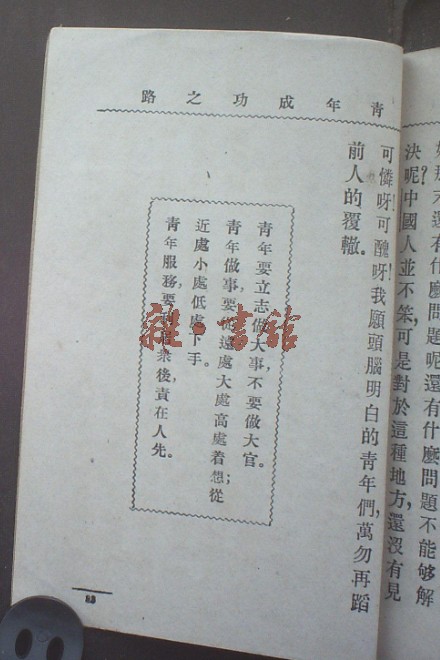 還有什麼問題呢還有什麼問題不能够解
決呢?中國人並不笨,可是對於這種地方,還沒有見
青年成功之路
可憐呀!可醜呀!我願頭腦明白的青年們,萬勿再蹈
前人的覆轍。
青年要立志做大事,不要做大官。
青年做事,要從遠處大處高處着想;從
近處小處低處下手。
青年服務,要居衆後,責在人先。
書館